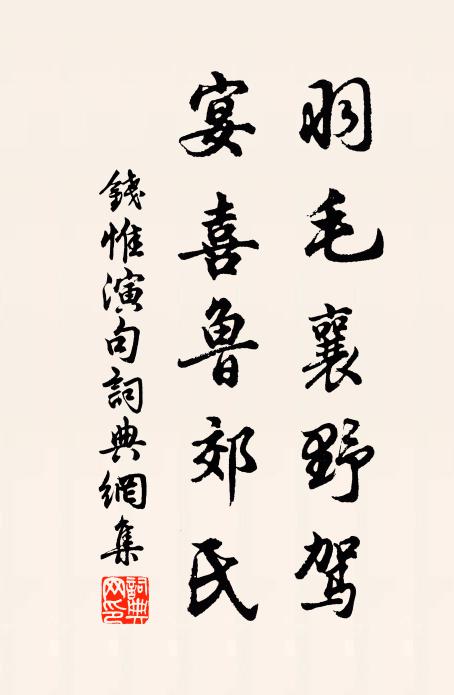 羽毛襄野驾
宴喜魯郊民
錢惟演句詞典網集
詞典网印